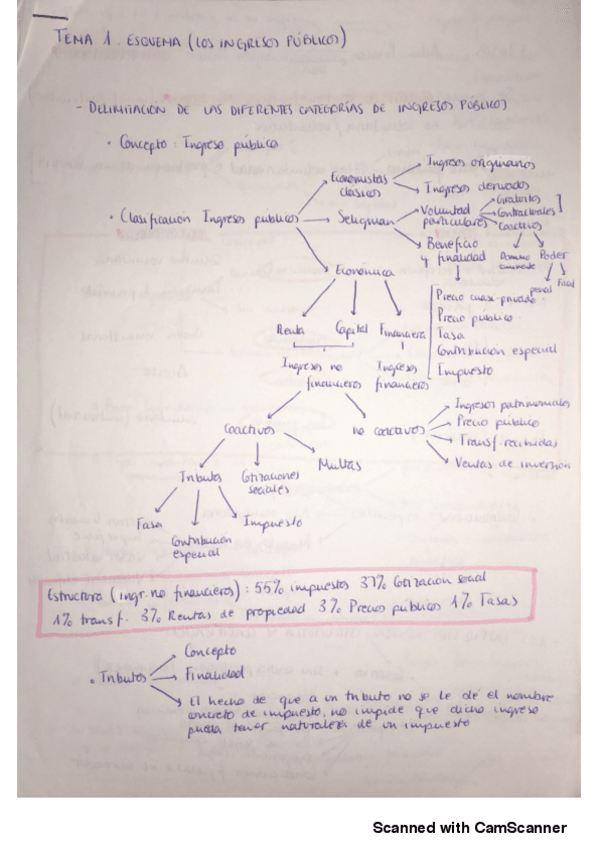 TEMA 1. ESQUEMA (LOS INGRESOS PÚBLICOS)
- DELIMITACIÓN DE LAS DIFERENTES CATEGORÍAS DE INGRESOS PÚBLICOS
• Concepto: Ingreso público
• Clasificación Ingresos públicos
Economistas clásicos
Ingresos originarios
Ingresos derivados
Seligman
Voluntad particulares
Gratuitos
Contractuales
Coactivos
Dominio eminente
Poder
penal
fiscal
Beneficio y finalidad
Precio cuasi-privado
Precio público
Tasa
Contribución especial
Impuesto
Económica
Renta
Capital
Financiera
Ingresos no financieros
Ingresos financieros
Coactivos
no coactivos
Ingresos patrimoniales
Precio público
Transf. recibidas
Ventas de inversión
Tributos
Cotizaciones sociales
Multas
Tasa
Contribución especial
Impuesto
Estructura (ingr. no financieros): 55% impuestos 37% Cotización social
1% transf. 3% Rentas de propiedad 3% Precios públicos 1% Tasas
• Tributos
Concepto
Finalidad
El hecho de que a un tributo no se le dé el nombre
concreto de impuesto, no impide que dicho ingreso
pueda tener naturaleza de un impuesto
Scanned with CamScanner